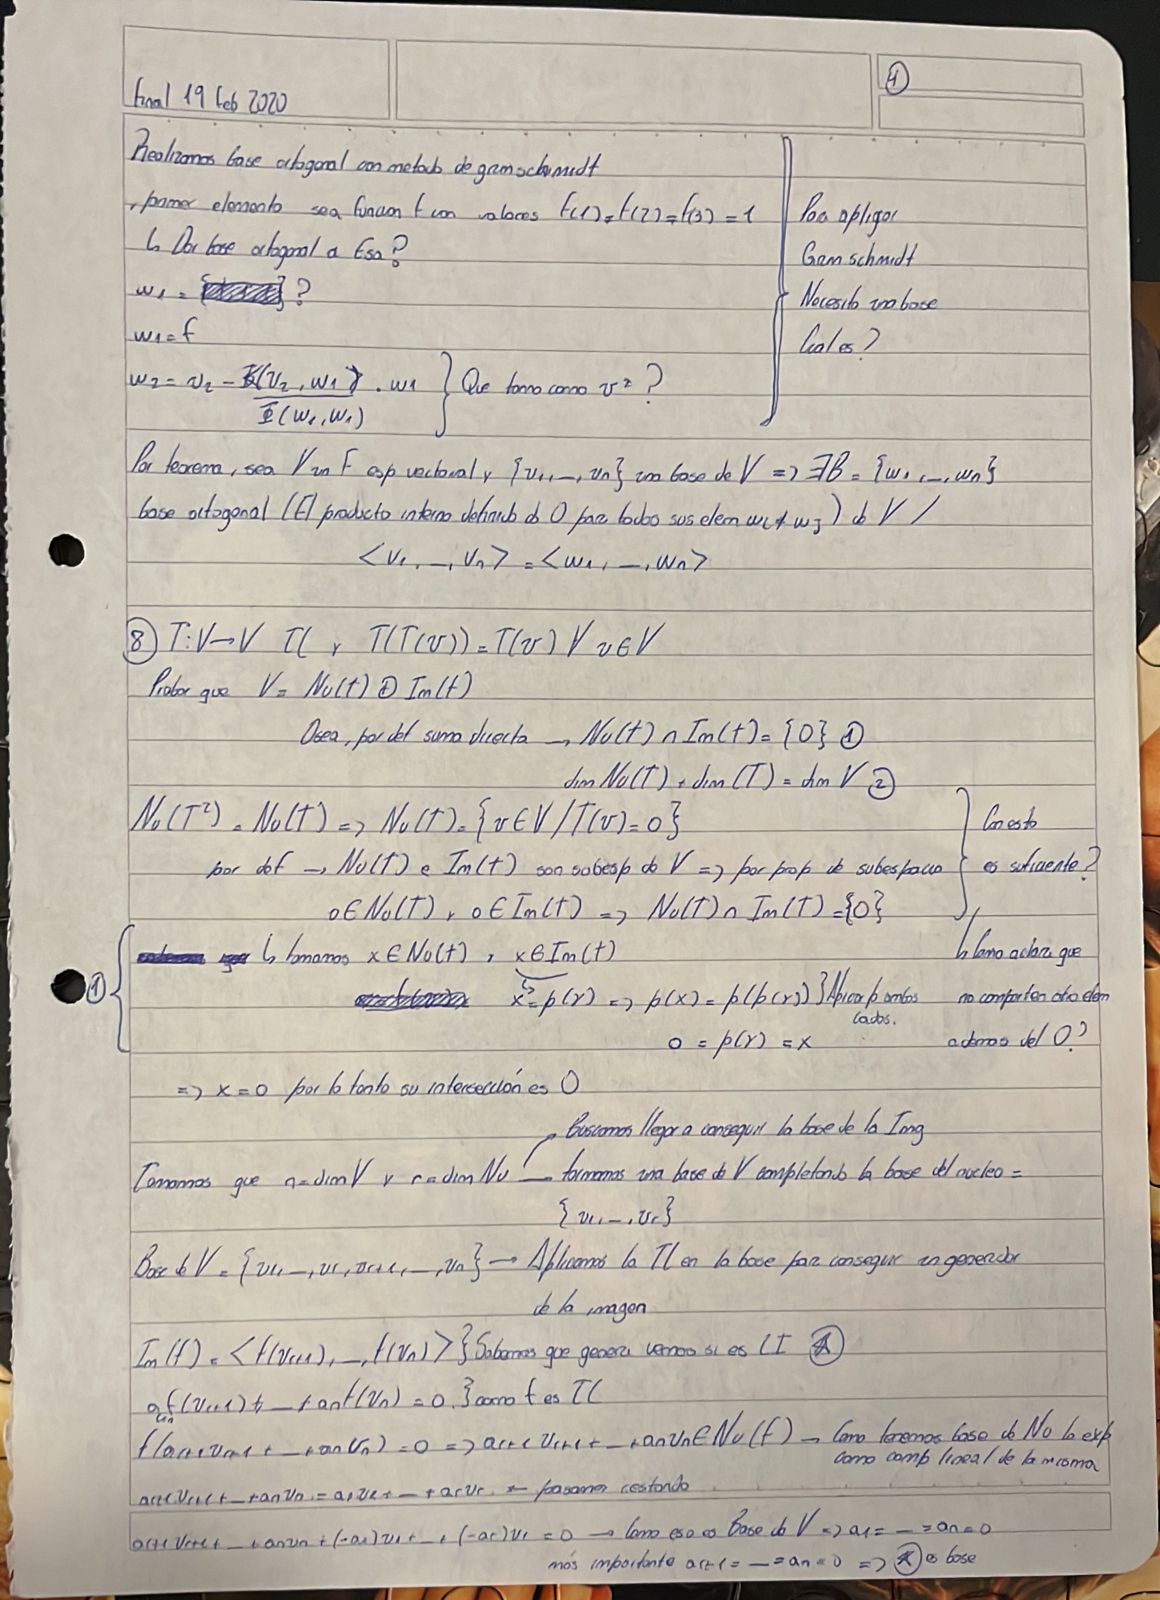 final 19 feb 2020
1
Realizamos base octogonal con metodo de gramschmidt
, primer elemento sea funcion f con valores f(1)=f(2)=f(3)=1
↳ Dar base octogonal a Esa?
w1 = { } ?
w1=f
w2 = v2 - Φ(v2, w1) . w1 } Que tomo como v2?
Φ(w1, w1)
Para apligar
Gram schmidt
Necesito una base
Cual es?
Por teorema, sea V un F esp vectorial y {v1, _, vn} una base de V => ∃B = {w1, _, wn}
base octogonal (El producto interno definido da 0 para todos sus elem wi ≠ wj) de V /
<v1, _, vn> = <w1, _, wn>
8 T:V→V TL y T(T(v)) = T(v) ∀ v∈V
Probar que V = Nu(t) ⊕ Im(t)
Osea, por def suma directa → Nu(t) ∩ Im(t) = {0} 1
dim Nu(T) + dim(T) = dim V 2
Nu(T²) = Nu(T) => Nu(T) = {v∈V / T(v)=0}
por def → Nu(T) e Im(t) son subesp de V => por prop de subespacio
0∈Nu(T) y 0∈Im(t) => Nu(T) ∩ Im(T) = {0}
Con esto
es suficiente?
↳ Como aclara que
no comparten otro elem
ademas del 0?
1 ↳ tomamos x∈Nu(t), x∈Im(t)
x = p(y) => p(x) = p(p(y)) } Aplicar p ambos
lados.
0 = p(y) = x
=> x=0 por lo tanto su intersección es 0
Buscamos llegar a conseguir la base de la Img
Tomamos que n=dim V y r=dim Nu — formamos una base de V completando la base del nucleo =
{v1, _, vr}
Base de V = {v1, _, vr, vr+1, _, vn} → Aplicamos la TL en la base para conseguir un generador
de la imagen
Im(f) = <f(vr+1), _, f(vn)> } Sabemos que genera vemos si es LI ★
ar+1 f(vr+1) + _ + an f(vn) = 0. } como f es TL
f(ar+1 vr+1 + _ + an vn) = 0 => ar+1 vr+1 + _ + an vn ∈ Nu(f) → Como tenemos base de Nu lo exp
como comb lineal de la misma
ar+1 vr+1 + _ + an vn = a1 v1 + _ + ar vr. ← pasamos restando
ar+1 vr+1 + _ + an vn + (-a1) v1 + _ + (-ar) vr = 0 → Como eso es Base de V => a1 = _ = an = 0
más importante ar+1 = _ = an = 0 => ★ es base